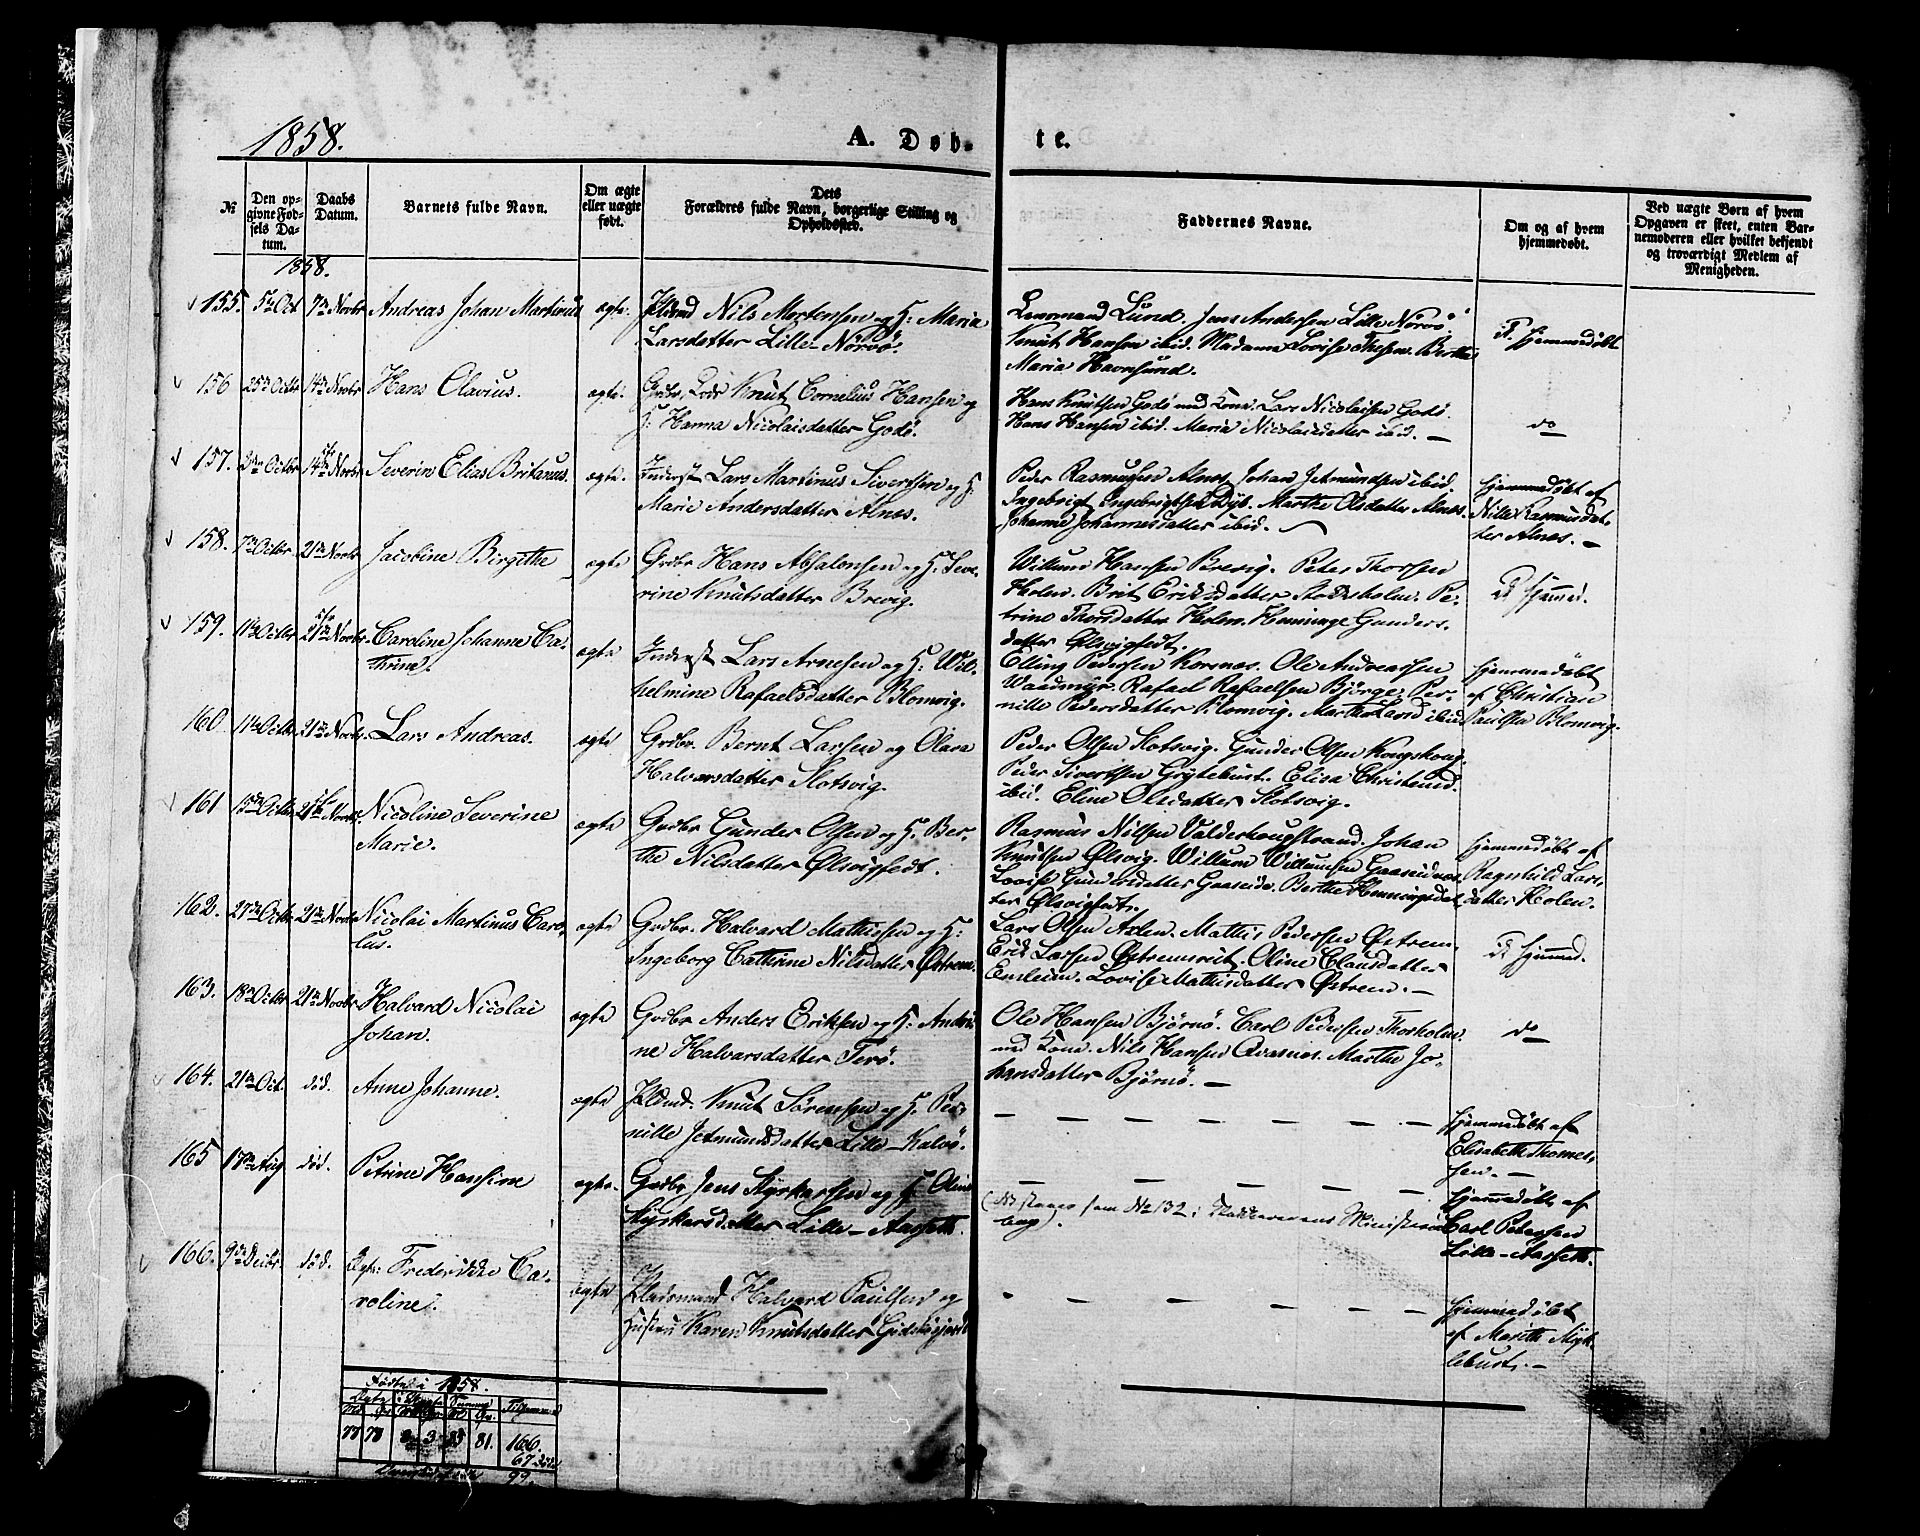 1858.
A. Døb-
te.
№
Den op-
givne Fød-
sels Da-
tum.
Daabs
Datum.
Barnets fulde Navn.
Om ægte
eller uægte
født.
Dets
Forældres fulde Navn, borgerlige Stilling og
Opholdssted.
Faddernes Navne.
Om og af hvem
hjemmedøbt.
Ved uægte Børn af hvem
Opgaven er skeet, enten Bar-
nemoderen eller hvilket bekjendt
og troværdigt Medlem af
Menigheden.
1858.
155. 5te Oct 7de Novbr Andreas Johan Martinus ægte. Nils Mortensen og H: Maria
Larsdatter Lille-Nörvö.
Lensmand Lund. Jens Andersen Lille Nörvö.
Knut Hansen ibid. Madame Lovise Thesen. Berthe
Maria Havnsund.
hjemmedöbt
156 25de Octbr 14de Novbr Hans Olavius. ægte. Grdbr. Knut Cornelius Hansen og
H: Hanna Nicolaisdatter Godö.
Hans Knutsen Godö med Kone. Lars Nicolaisen Godö.
Hans Hansen ibid. Maria Nicolaisdatter ibid. —
do
157. Octbr 14de Novbr Severin Elias Britanus. ægte. Inderst Lars Martinus Sivertsen og H:
Marie Andersdatter Alnes.
Peder Rasmusen Alnes. Johan Jetmundsen ibid.
Ingebrigt Ingebrigtsen Dyb. Marthe Olsdatter Alnes.
Johanne Johannesdatter ibid. —
hjemmedöbt af
Nille Rasmusdat-
ter Alnes. —
158. 7de Octbr 21de Novbr Jacobine Birgithe ægte Grdbr Hans Absalonsen og H: Seve-
rine Knutsdatter Brevig.
Willum Hansen Brevig. Peter Thorsen
Holen. Brit Eriksdatter Stokholm. Pe-
trine Thorsdatter Holen. Henninge Gunders-
datter Ölsvigfedt.
hjemmed.
159. 11te Octbr 21de Novbr Caroline Johanne Ca-
thrine. ægte Inderst Lars Arnesen og H: Wil-
helmine Rafaelsdatter Blomvig.
Elling Pedersen Korsnes. Ole Andreassen
Waadmyr. Rafael Rafaelsen Björge. Per-
nille Pedersdatter Blomvig. Marthe Lund ibid
hjemmedöbt
af Christian
Paulsen Blomvig.
160 11te Octbr 21de Novbr. Lars Andreas. ægte Grdbr. Bernt Larsen og Olava
Halvarsdatter Slotsvig.
Peder Olsen Slotsvig. Gunder Olsen Kongshoug.
Peder Sivertsen Grytebust. Elisa Christensd.
ibid. Eline Olsdatter Slotsvig.
161 15de Octbr 21de Novbr. Nicoline Severine
Marie. ægte Grdbr Gunder Olsen og H: Ber-
the Nilsdatter Ölsvigfedt.
Rasmus Nilsen Valderhougstrand. Johan
Knutsen Ölsvig. Willum Willumsen Gaaseidnes.
Lovise Gundersdatter Gaaseide. Berthe Henningsdat-
ter Ölsvigfedt.
hjemmedöbt af
Ragnhild Lars-
datter Holen.
162. 27de Octbr 21de Novbr Nicolai Martinus Caro-
lus. ægte Grdbr. Halvard Mathiesen og H:
Ingeborg Cathrine Nilsdatter Östrem.
Lars Olsen Aslen. Mathis Pedersen Östrem.
Erik Larsen Östremsvit. Oline Clausdatter
Emleim. Lovise Mathisdatter Östrem. —
hjemmed.
163. 18de Octbr 21de Novbr Halvard Nicolai
Johan. ægte Grdbr Anders Eriksen og H: Andri-
ne Halvarsdatter Terö.
Ole Hansen Björnö. Carl Pedersen Thorholm.
med Kone. Nils Hansen Qvasnes. Marthe Jo-
hansdatter Björnö. —
do
164. 21de Oct. död. Anne Johanne. ægte Knut Sörensen og H. Per-
nille Jetmundsdatter Lille-Kalvö.
hjemmedöbt af
Elisabeth Thomes-
sen. —
165 17de Aug död. Petrine Hansine ægte. Grdbr Jens Styrkarsen og H Oline
Styrkarsdatter Lille-Aaseth.
som No 132 i Ministerial
bog).
hjemmedöbt af
Carl Petersen
Lille-Aaseth.
166. 9de Decbr. död. Frederikke Ca-
roline. ægte Pladsmand Halvard Paulsen og
Hustru Karen Knutsdatter
hjemmedöbt
af Marithe Myk-
lebust. —
Födte i 1858.
81. 166.
67
99.